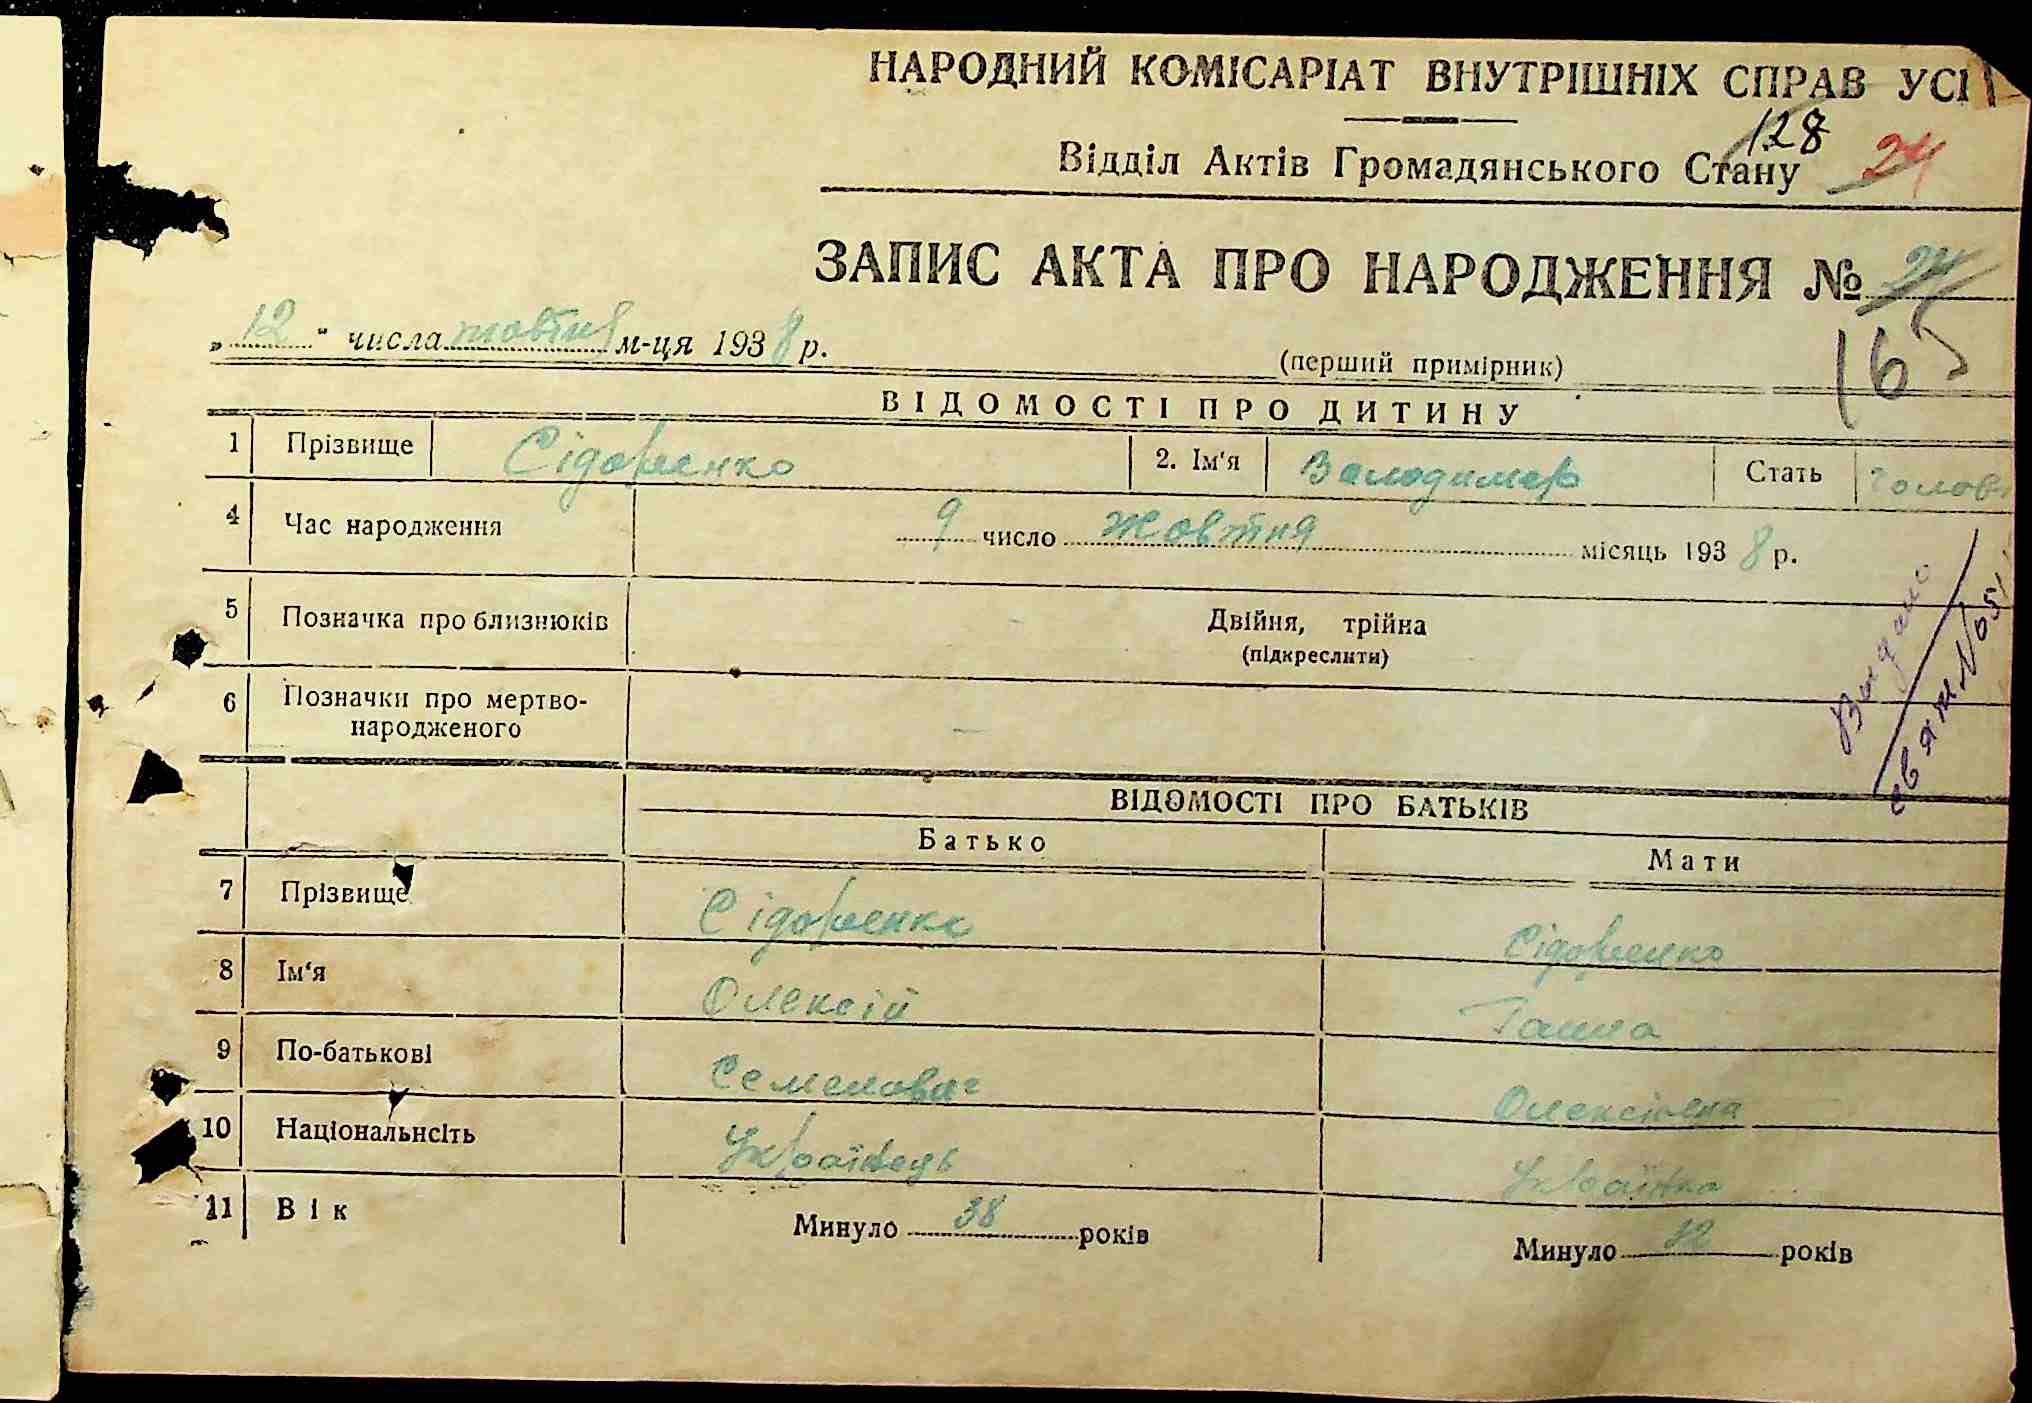 НАРОДНИЙ КОМІСАРІАТ ВНУТРІШНІХ СПРАВ УСІ
128
Відділ Актів Громадянського Стану 24
ЗАПИС АКТА ПРО НАРОДЖЕННЯ № 24
165
„12“ числа жовтня м-ця 1938 р.
(перший примірник)
ВІДОМОСТІ ПРО ДИТИНУ
1 Прізвище Сідоренко 2. Ім'я Володимер Стать Чолов
4 Час народження 9 число Жовтня місяць 1938 р.
5 Позначка про близнюків Двійня, трійна
(підкреслити)
6 Позначки про мертво-
народженого
Видано
ВІДОМОСТІ ПРО БАТЬКІВ
Батько Мати
7 Прізвище Сідоренко Сідоренко
8 Ім'я Олексій Ганна
9 По-батькові Семенович Олексіївна
10 Національнсіть Українець Українка
11 Вік Минуло 38 років Минуло років